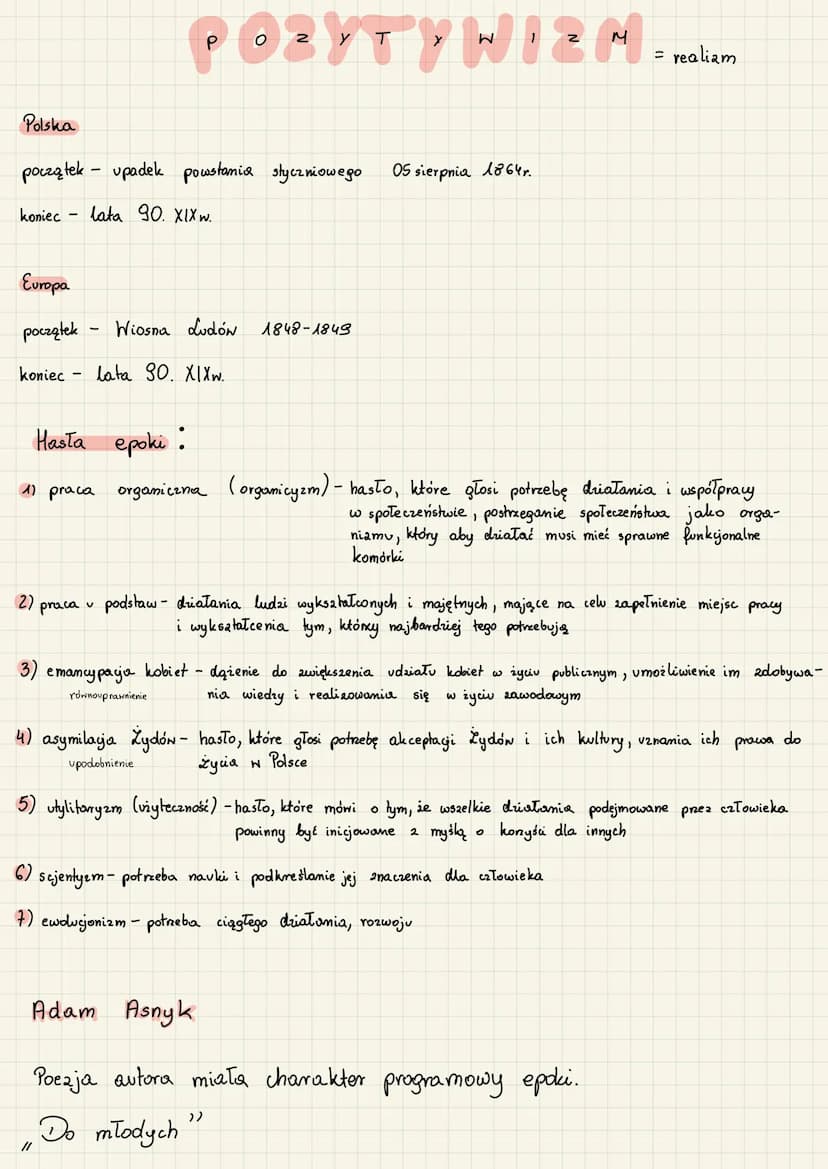 POZYTYWIZM = realizm
Polska
początek - upadek powstania styczniowego 05 sierpnia 1864r.
koniec - lata 90. XIXw.
Europa
początek - Wiosna Ludów 1848-1849
koniec - lata 90. XIXw.
Hasła epoki :
1) praca organiczna (organicyzm) - hasło, które głosi potrzebę działania i współpracy
w społeczeństwie, postrzeganie społeczeństwa jako orga-
nizmu, który aby działać musi mieć sprawne funkcjonalne
komórki
2) praca u podstaw - działania ludzi wykształconych i majętnych, mające na celu zapełnienie miejsc pracy
i wykształcenia tym, którzy najbardziej tego potrzebują
3) emancypacja kobiet - dążenie do zwiększenia udziału kobiet w życiu publicznym, umożliwienie im zdobywa-
równouprawnienie nia wiedzy i realizowania się w życiu zawodowym
4) asymilacja Żydów - hasło, które głosi potrzebę akceptacji Żydów i ich kultury, uznania ich prawa do
upodobnienie życia w Polsce
5) utylitaryzm (użyteczność) - hasło, które mówi o tym, że wszelkie działania podejmowane przez człowieka
powinny być inicjowane z myślą o korzyści dla innych
6) scjentyzm - potrzeba nauki i podkreślanie jej znaczenia dla człowieka
7) ewolucjonizm - potrzeba ciągłego działania, rozwoju
Adam Asnyk
Poezja autora miała charakter programowy epoki.
„Do młodych”